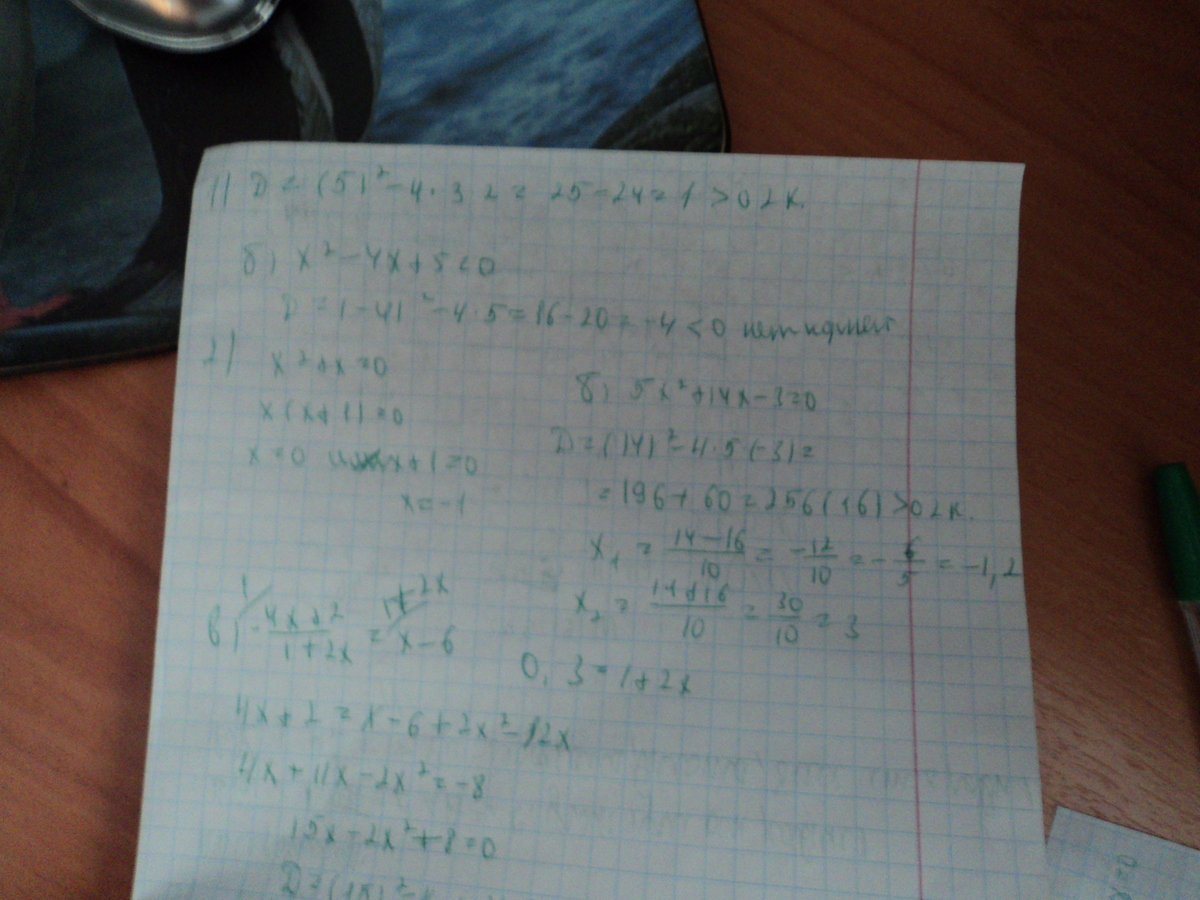 1) D = (5)² - 4 · 3 · 2 = 25 - 24 = 1 > 0 2к.
б) x² - 4x + 5 = 0
D = (-4)² - 4 · 5 = 16 - 20 = -4 < 0 нет
2) x² + x = 0
x(x+1) = 0
x = 0 или x + 1 = 0
x = -1
б) 5x² + 14x - 3 = 0
D = (14)² - 4 · 5 (-3) =
= 196 + 60 = 256 (16) > 0 2к.
x₁ = \frac{14-16}{10} = -\frac{12}{10} = -\frac{6}{5} = -1,2
x₂ = \frac{14+16}{10} = \frac{30}{10} = 3
0,3 = 1 + 2x
в) \frac{4x+2}{1+2x} = x - 6
1
1+2x
4x + 2 = x - 6 + 2x² - 12x
4x + 11x - 2x² = -8
15x - 2x² + 8 = 0